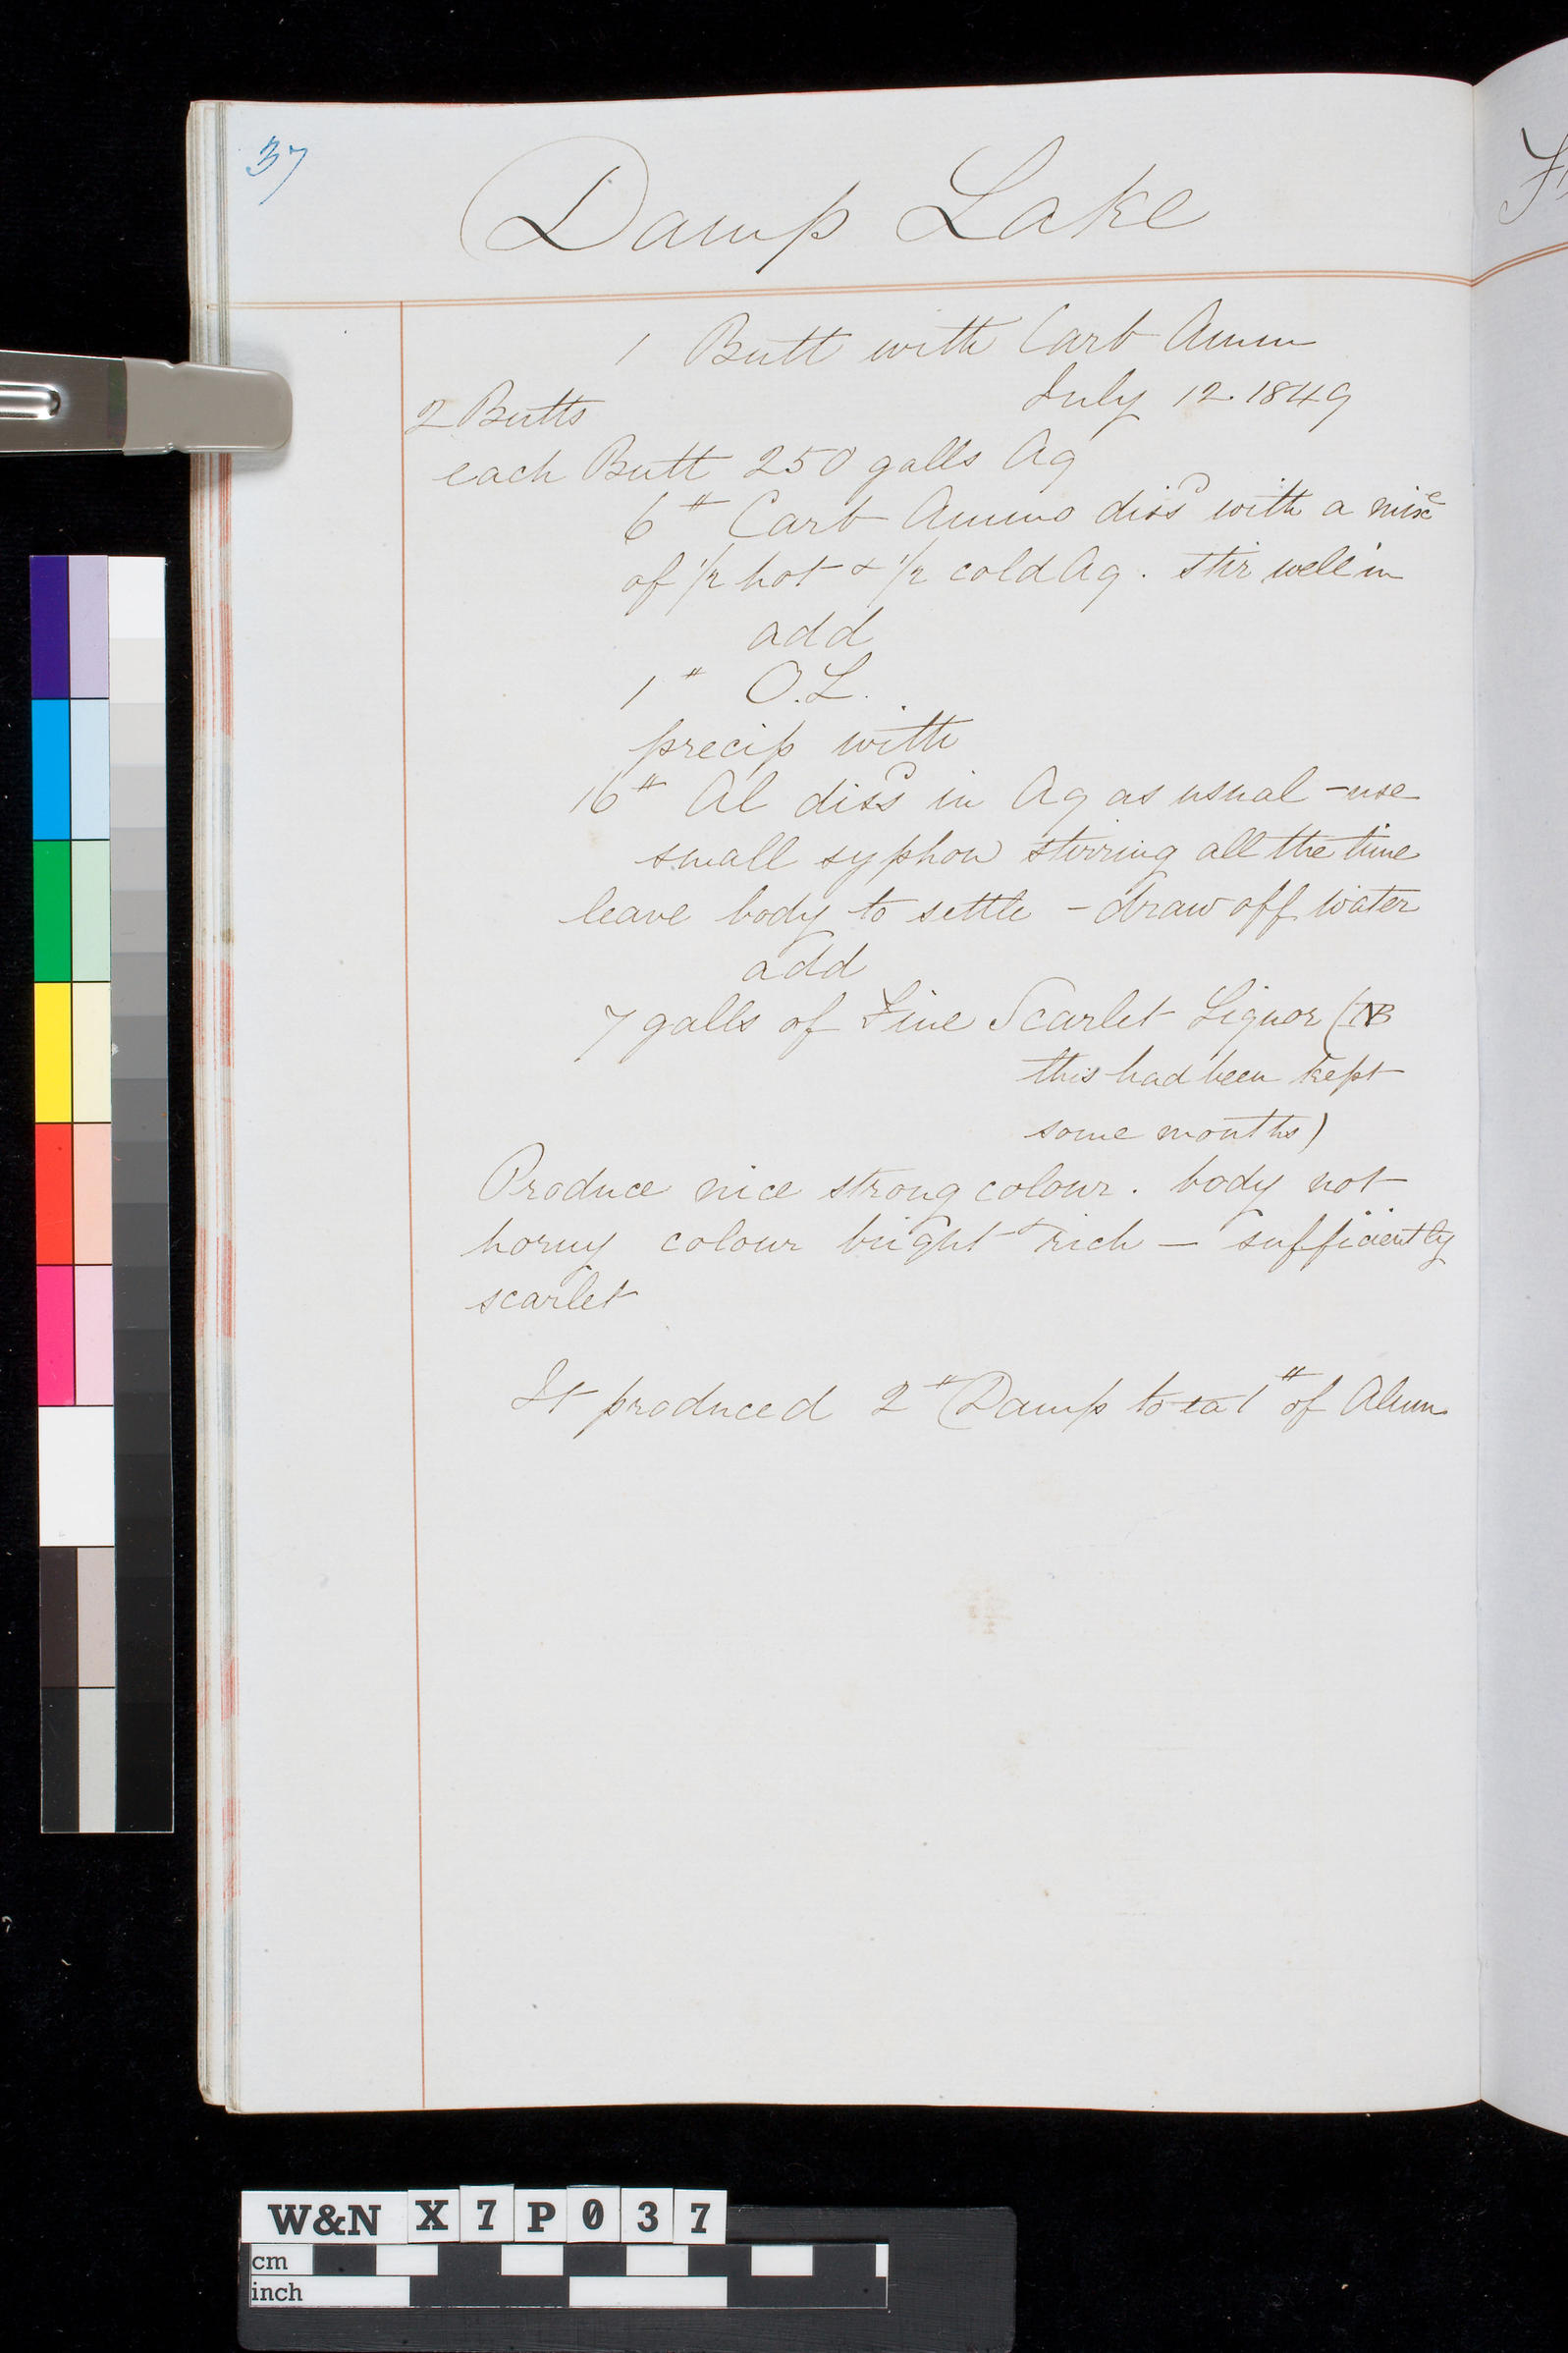 37
Damp Lake
1 Butt with Carb Amm
July 12. 1849
2 Butts
each Butt 250 galls Aq
6# Carb Ammo dissd with a mixe
of 1/2 hot & 1/2 cold Aq. stir well in
add
1# O.L.
precip with
16# Al dissd in Aq as usual - use
small syphon stirring all the time
leave body to settle - draw off water
add
7 galls of Fine Scarlet Liquor (NB
this had been kept
some months)
Produce nice strong colour. body not
horny colour bright & rich - sufficiently
scarlet
It produced 2# Damp to ea 1# of Alum
W&N X7P037
cm
inch